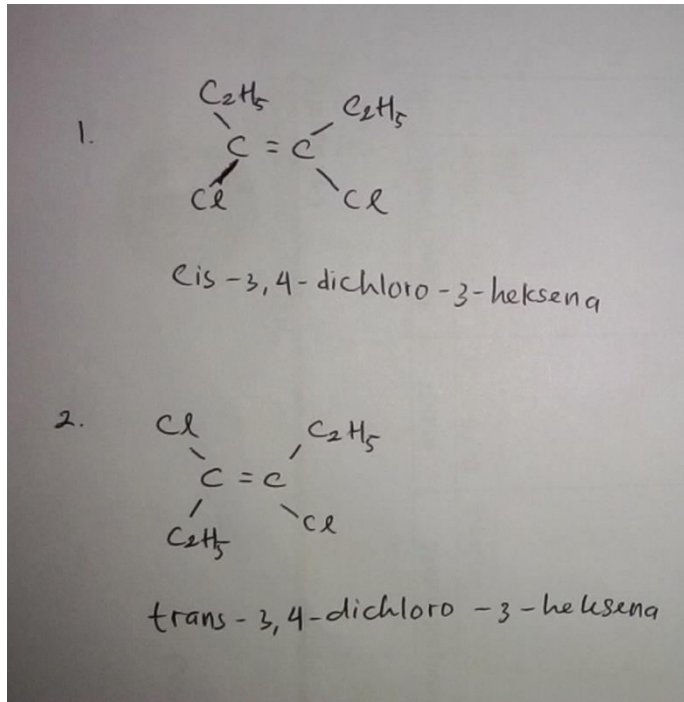 1.
C2H5 C2H5
C = C
Cl Cl
Cis - 3,4 - dichloro - 3 - heksena
2.
Cl C2H5
C = C
C2H5 Cl
trans - 3,4 - dichloro - 3 - heksena